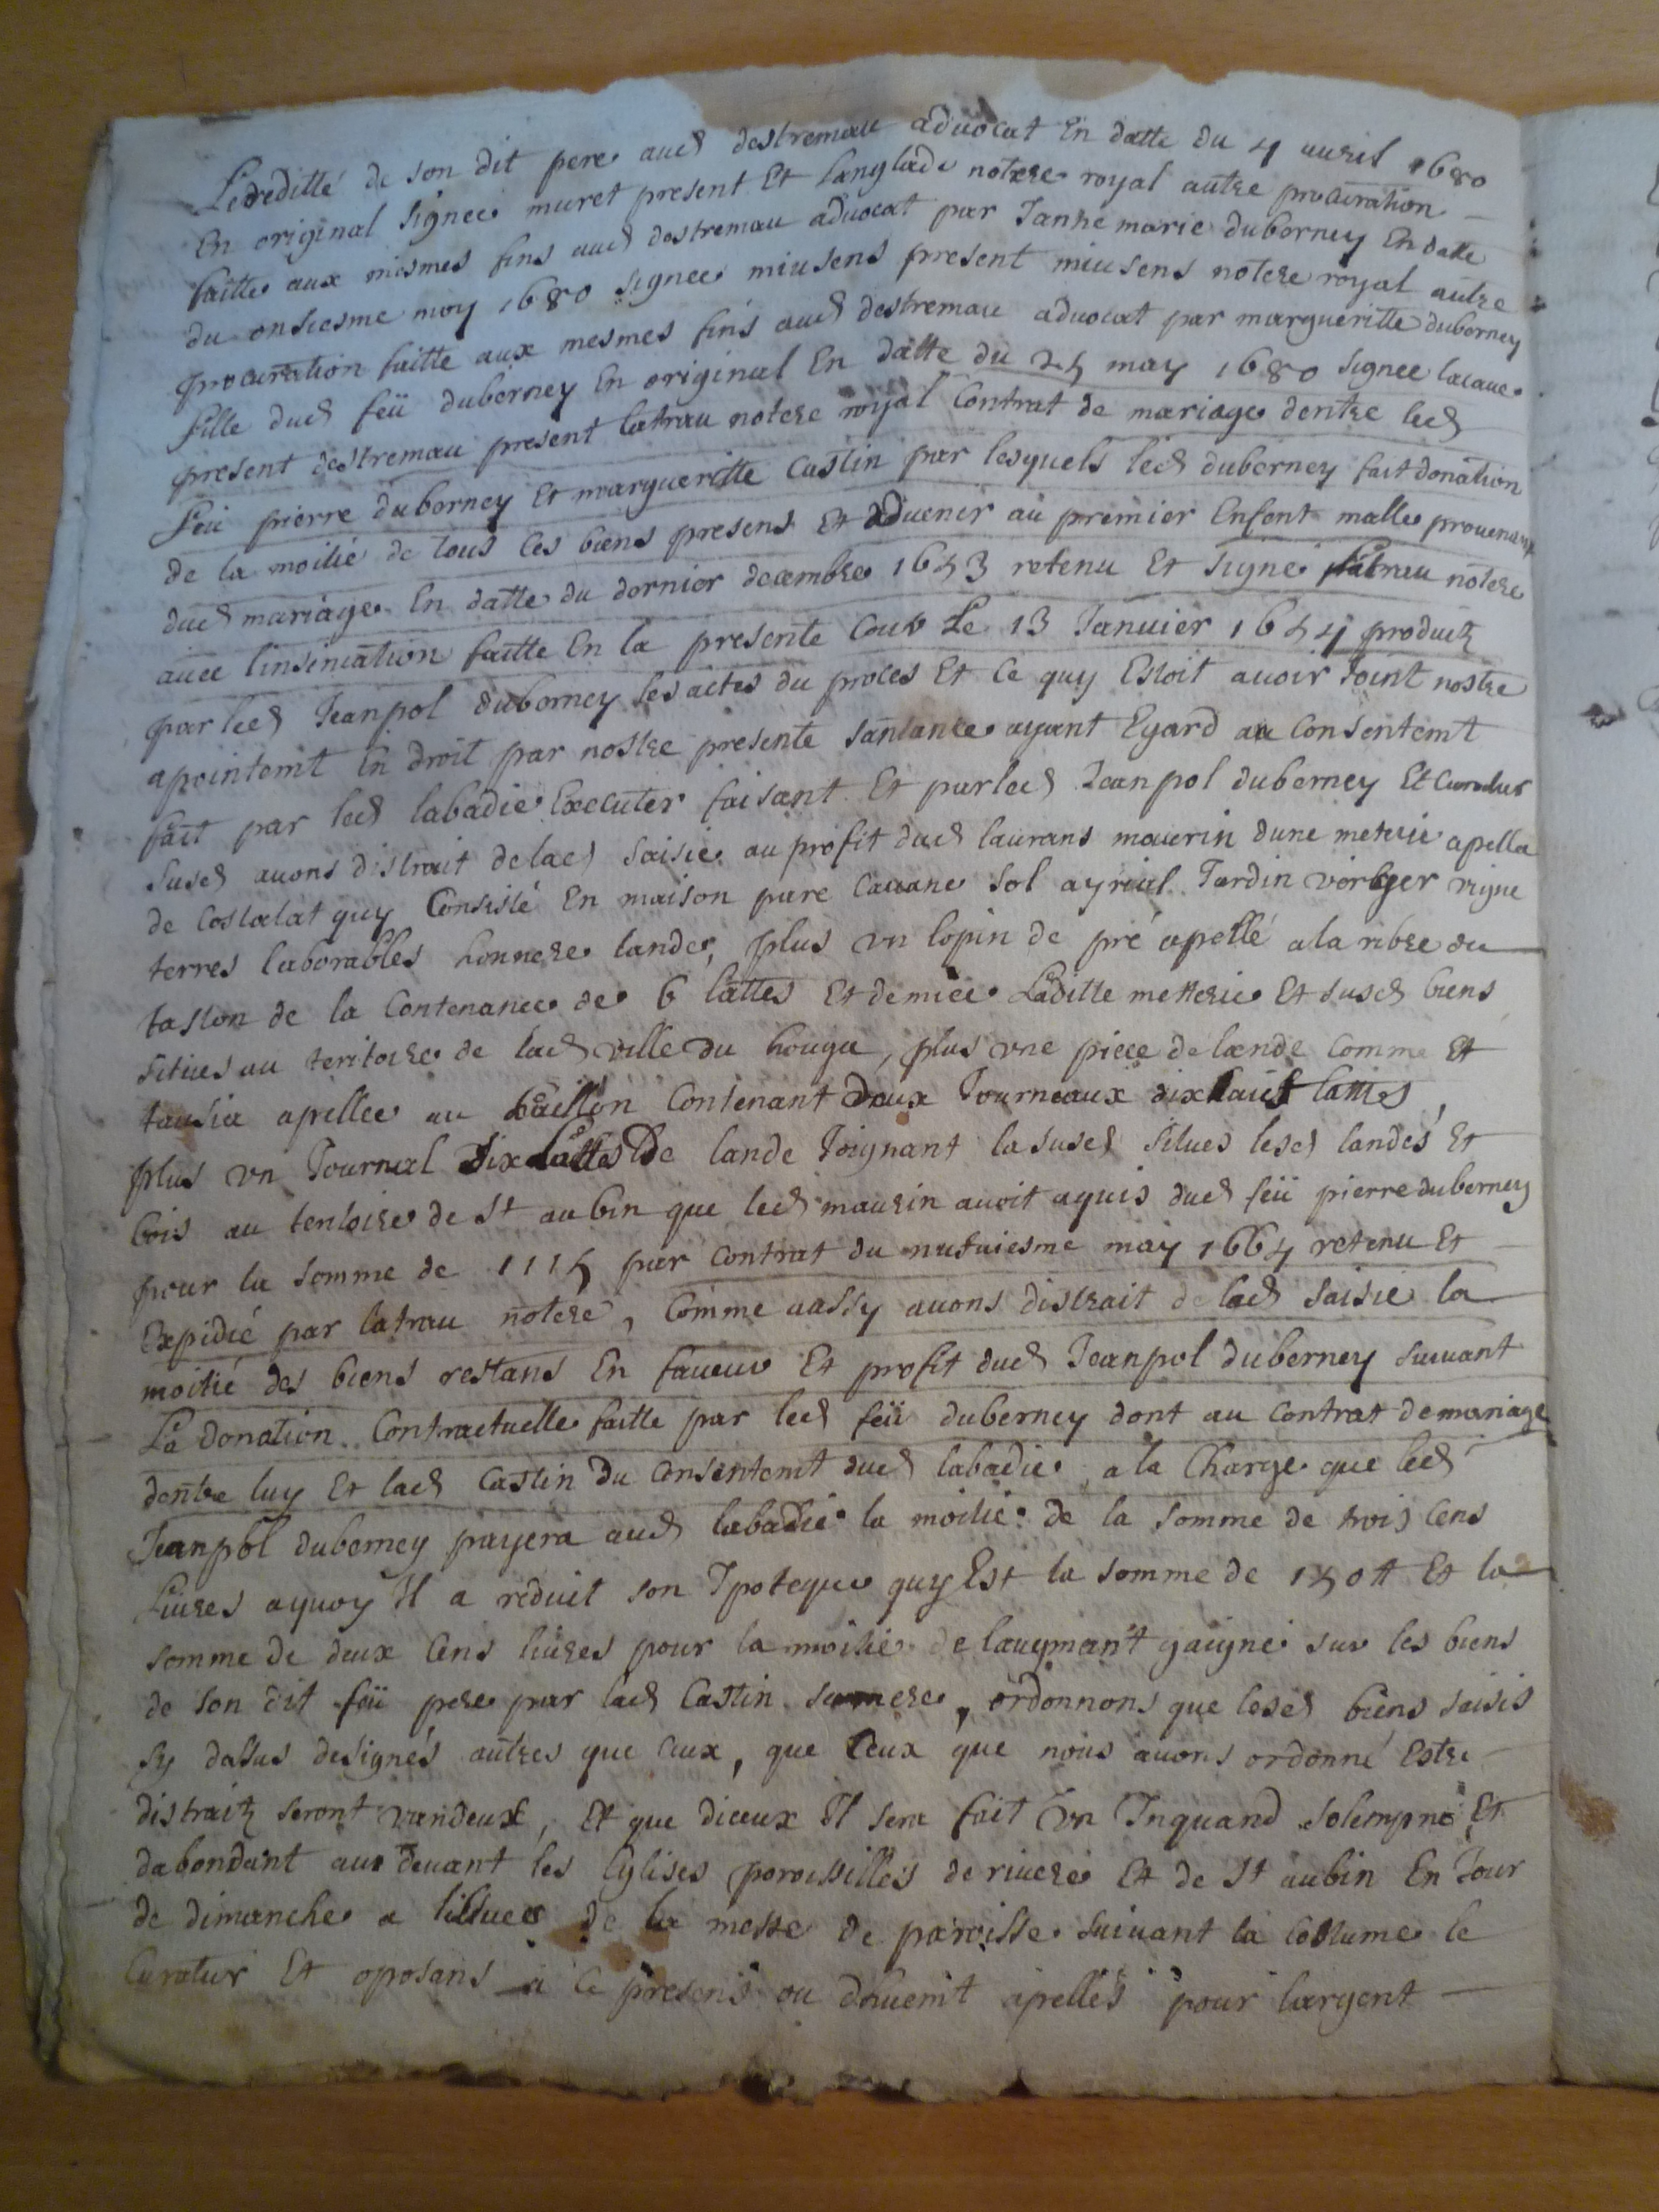 Lheredité de son dit pere aud destremau advocat En datte du 4 avril 1680
En original signee muret present Et Langlade notere royal autre procuration
faitte aux mesmes fins aud destremau advocat par Janne marie duberney En datte
du onsiesme may 1680 signee miusens present miusens notere royal autre
procuration faitte aux mesmes fins aud destremau advocat par margueritte duberney
fille dud feü duberney En original En datte du 25 may 1680 signee lacaue
present destremau present latrau notere royal Contrat de mariage dentre led
feü pierre duberney Et margueritte Castin par lesquels led duberney fait donation
de la moitié de tous ses biens presens Et advenir au premier Enfent malle provenant
dud mariage En datte du dernier decembre 1643 retenu Et signé latrau notere
avec linsinuation faitte En la presente Cour Le 13 Januier 1644 produitz
par led Jeanpol duberney les actes du proces Et Ce quy Estoit avoir Joint nostre
apointemt En droit par nostre presente santance ayant Egard au Consentemt
fait par led labadie Executer faisant Et par led Jeanpol duberney Et Curateur
susd avons distrait de lad saisie au profit dud laurans maurin dune meterie apellee
de Costalat quy Consiste En maison parc Cavane sol ayrial Jardin veriger vigne
terres laborables honnere lande, plus vn lopin de pré apellé a la ribre du
taston de la Contenance de 6 lattes Et demiee Laditte metterie Et susd biens
situes au teritoire de lad ville du houga, plus vne piece de lande Comme Et
tausia apellee au Contenant deux Journeaux dixhuit lattes
plus vn Journal dix lattes De lande Joignant la susd situes lesd landes Et
bois au teritoire de St aubin que led maurin avoit aquis dud feü pierre duberney
pour la somme de 1115 par Contrat du may 1664 retenu Et
Expidié par latrau notere, Comme aussy avons distrait de lad saisie la
moitié des biens restans En faveur Et profit dud Jeanpol duberney suivant
La donation Contractuelle faitte par led feü duberney dont au Contrat de mariage
dentre luy Et lad Castin Du Consentemt dud labadie, a la Charge que led
Jeanpol duberney payera aud labadie la moitié de la somme de trois Cens
Livres aquoy Il a reduit son Ipoteque quy Est la somme de 150 tt Et la
somme de deux Cens livres pour la moitié de laugmant gaigné sur les biens
de son dit feü pere par lad Castin sa mere, ordonnons que lesd biens saisis
sy dassus designés autres que Ceux, que Ceux que nous avons ordonné Estre
distraitz seront vandeux, Et que diceux Il sera fait Vn Inquand solempne Et
dabondant au devant les Eglises paroissilles de riviere Et de St aubin En Jour
de dimanche a lissuee de la messe de paroisse suivant la Costume le
Curateur Et oposans a Ce presens ou dhuemt apellés pour largent